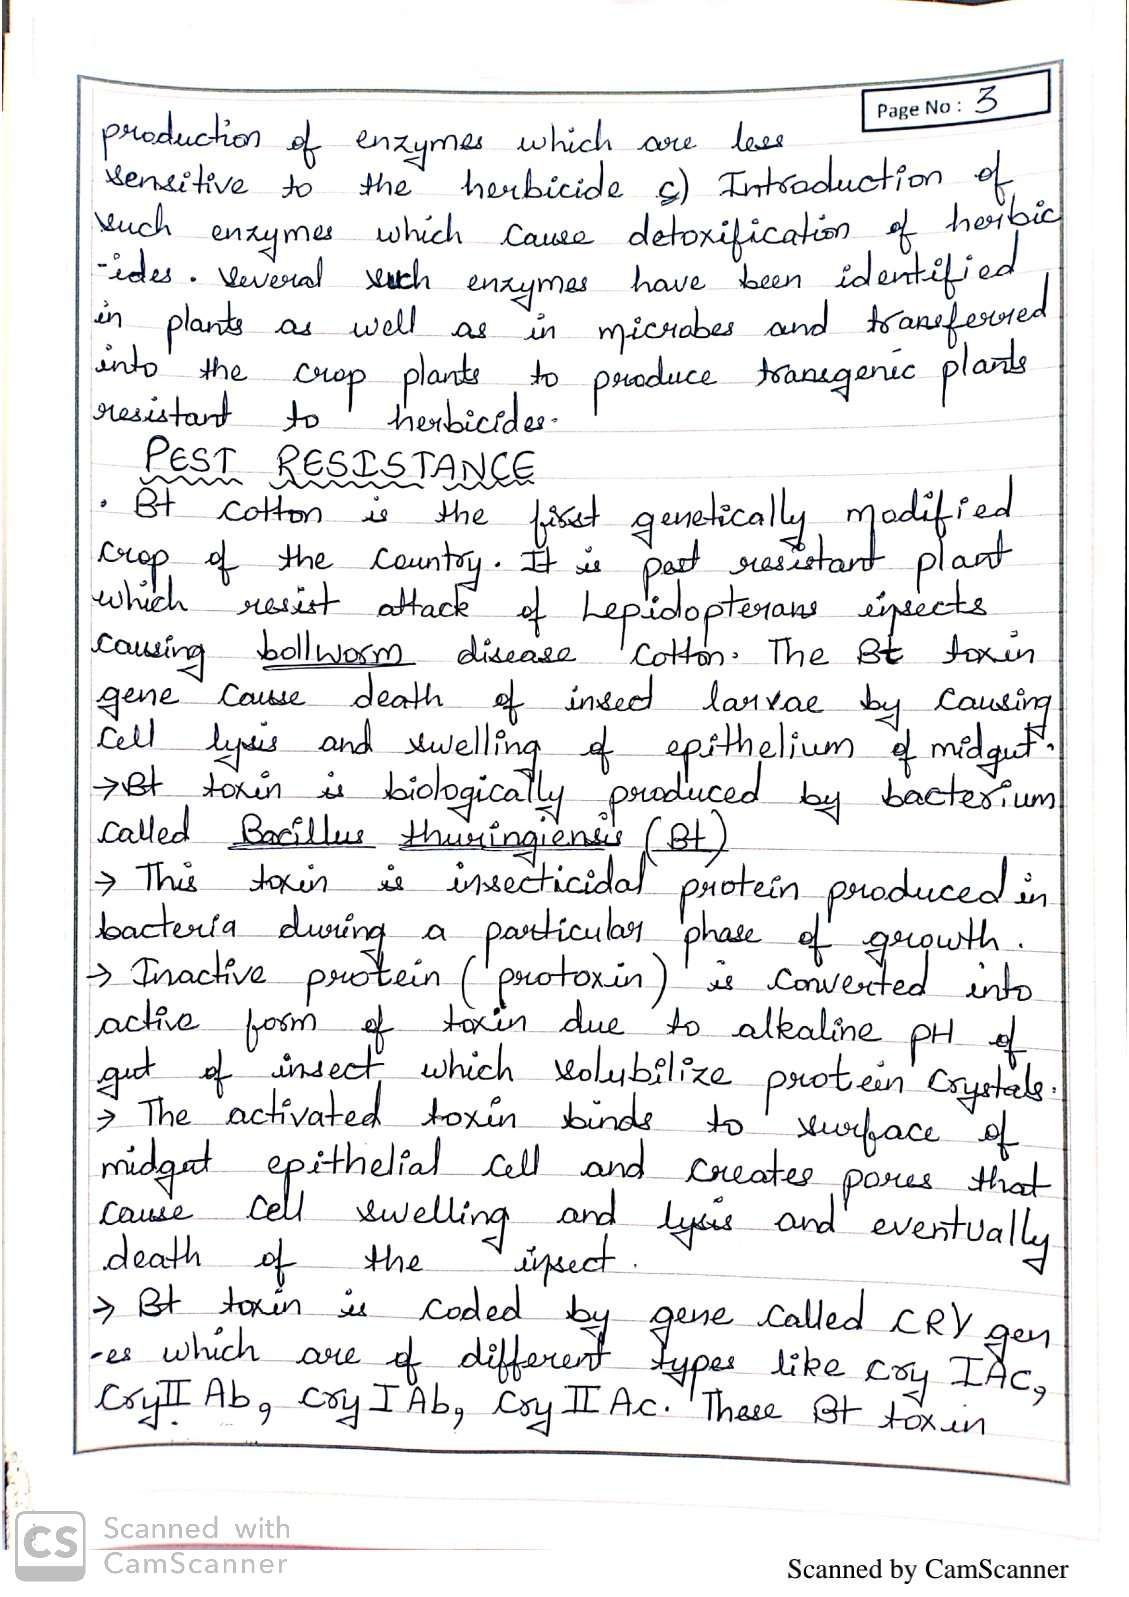 Page No : 3
production of enzymes which are less
sensitive to the herbicide c) Introduction of
such enzymes which cause detoxification of herbic
-ides. Several such enzymes have been identified
in plants as well as in microbes and transferred
into the crop plants to produce transgenic plants
resistant to herbicides.
PEST RESISTANCE
• Bt cotton is the first genetically modified
crop of the country. It is past resistant plant
which resist attack of Lepidopterans insects
causing bollworm disease cotton. The Bt toxin
gene cause death of insect larvae by causing
cell lysis and swelling of epithelium of midgut.
→Bt toxin is biologically produced by bacterium
called Bacillus thuringiensis (Bt)
→ This toxin is insecticidal protein produced in
bacteria during a particular phase of growth.
→ Inactive protein (protoxin) is converted into
active form of toxin due to alkaline pH of
gut of insect which solubilize protein crystals.
→ The activated toxin binds to surface of
midgut epithelial cell and creates pores that
cause cell swelling and lysis and eventually
death of the insect.
→ Bt toxin is coded by gene called CRY gen
-es which are of different types like cry IAc,
Cry II Ab, cry I Ab, Cry II Ac. These Bt toxin
CS Scanned with
CamScanner
Scanned by CamScanner